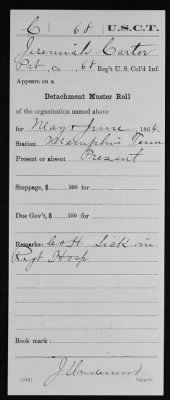 C 68 U.S.C.T.
Jeremiah Carter
Pvt, Co. , 68 Reg't U.S. Col'd Inf.
Appears on a
Detachment Muster Roll
of the organization named above
for May & June , 1864.
Station Memphis Tenn
Present or absent Present
Stoppage, $ 100 for
Due Gov't, $ 100 for
Remarks: Co H Sick in
Regt Hosp
Book mark:
Copyist.